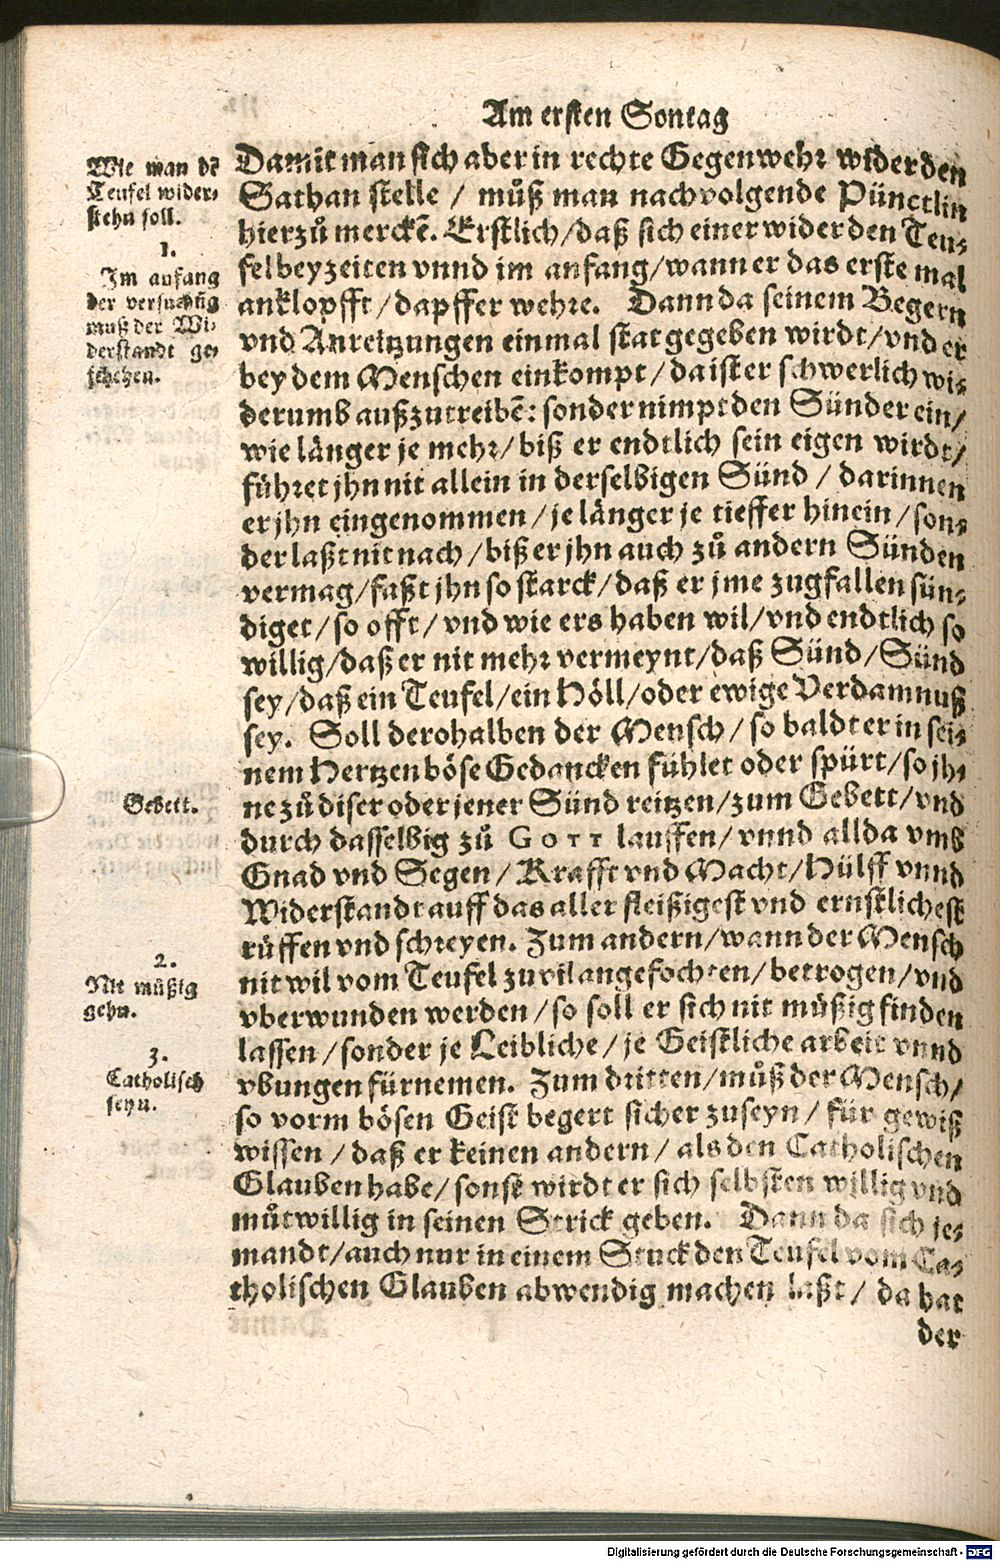 Am ersten Sontag
Wie man dē
Teufel wider⸗
stehn soll.
1.
Im anfang
der versuchūg
muß der Wi⸗
derstandt ge⸗
schehen.
Gebett.
2.
Nit müßig
gehn.
3.
Catholisch
seyn.
Damit man sich aber in rechte Gegenwehr wider den
Sathan stelle / můß man nachvolgende Pünctlin
hierzů merckē. Erstlich/daß sich einer wider den Teu⸗
fel bey zeiten vnnd im anfang/wann er das erste mal
anklopfft/dapffer wehre. Dann da seinem Begern
vnd Anreitzungen einmal stat gegeben wirdt/vnd er
bey dem Menschen einkompt/da ist er schwerlich wi⸗
derumb außzutreibē: sonder nimpt den Sünder ein/
wie länger je mehr/biß er endtlich sein eigen wirdt/
führet jhn nit allein in derselbigen Sünd / darinnen
er jhn eingenommen/je länger je tieffer hinein/son⸗
der laßt nit nach/biß er jhn auch zů andern Sünden
vermag/faßt jhn so starck/daß er jme zugfallen sün⸗
diget/so offt/vnd wie ers haben wil/vnd endtlich so
willig/daß er nit mehr vermeynt/daß Sünd/Sünd
sey/daß ein Teufel/ein Höll/oder ewige Verdamnuß
sey. Soll derohalben der Mensch/so baldt er in sei⸗
nem Hertzen böse Gedancken fühlet oder spürt/so jh⸗
ne zů diser oder jener Sünd reitzen/zum Gebett/vnd
durch dasselbig zů Gott lauffen/vnnd allda vmb
Gnad vnd Segen/Krafft vnd Macht/Hülff vnnd
Widerstandt auff das aller fleißigest vnd ernstlichest
růffen vnd schreyen. Zum andern/wann der Mensch
nit wil vom Teufel zuvil angefochten/betrogen/vnd
vberwunden werden/so soll er sich nit müßig finden
lassen/sonder je Leibliche/je Geistliche arbeit vnnd
vbungen fürnemen. Zum dritten/můß der Mensch/
so vorm bösen Geist begert sicher zuseyn/für gewiß
wissen/daß er keinen andern/als den Catholischen
Glauben habe/sonst wirdt er sich selbsten willig vnd
můtwillig in seinen Strick geben. Dann da sich je⸗
mandt/auch nur in einem Stuck den Teufel vom Ca⸗
tholischen Glauben abwendig machen laßt/da hat
der
Digitalisierung gefördert durch die Deutsche Forschungsgemeinschaft - DFG